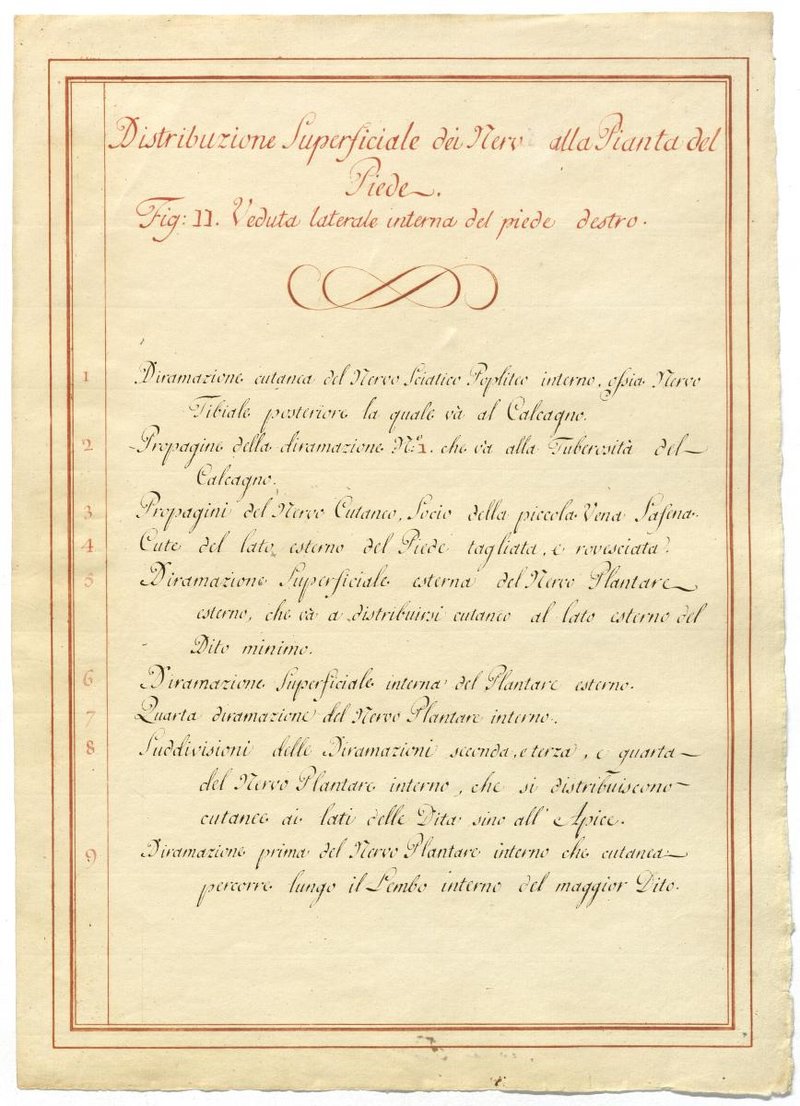 Distribuzione Superficiale dei Nerv alla Pianta del
Piede.
Fig: II. Veduta laterale interna del piede destro.
1 Diramazione cutanea del Nervo Sciatico Popliteo interno, ossia Nervo
Tibiale posteriore la quale và al Calcagno.
2 Propagine della diramazione N.º 1. che và alla Tuberosità del
Calcagno.
3 Propagini del Nervo Cutaneo, Socio della piccola Vena Safena.
4 Cute del lato esterno del Piede tagliata, e rovesciata.
5 Diramazione Superficiale esterna del Nervo Plantare
esterno, che và a distribuirsi cutaneo al lato esterno del
Dito minimo.
6 Diramazione Superficiale interna del Plantare esterno.
7 Quarta diramazione del Nervo Plantare interno.
8 Suddivisioni delle Diramazioni seconda, e terza, e quarta
del Nervo Plantare interno, che si distribuiscono
cutanee ai lati delle Dita sino all' Apice.
9 Diramazione prima del Nervo Plantare interno che cutanea
percorre lungo il Lembo interno del maggior Dito.